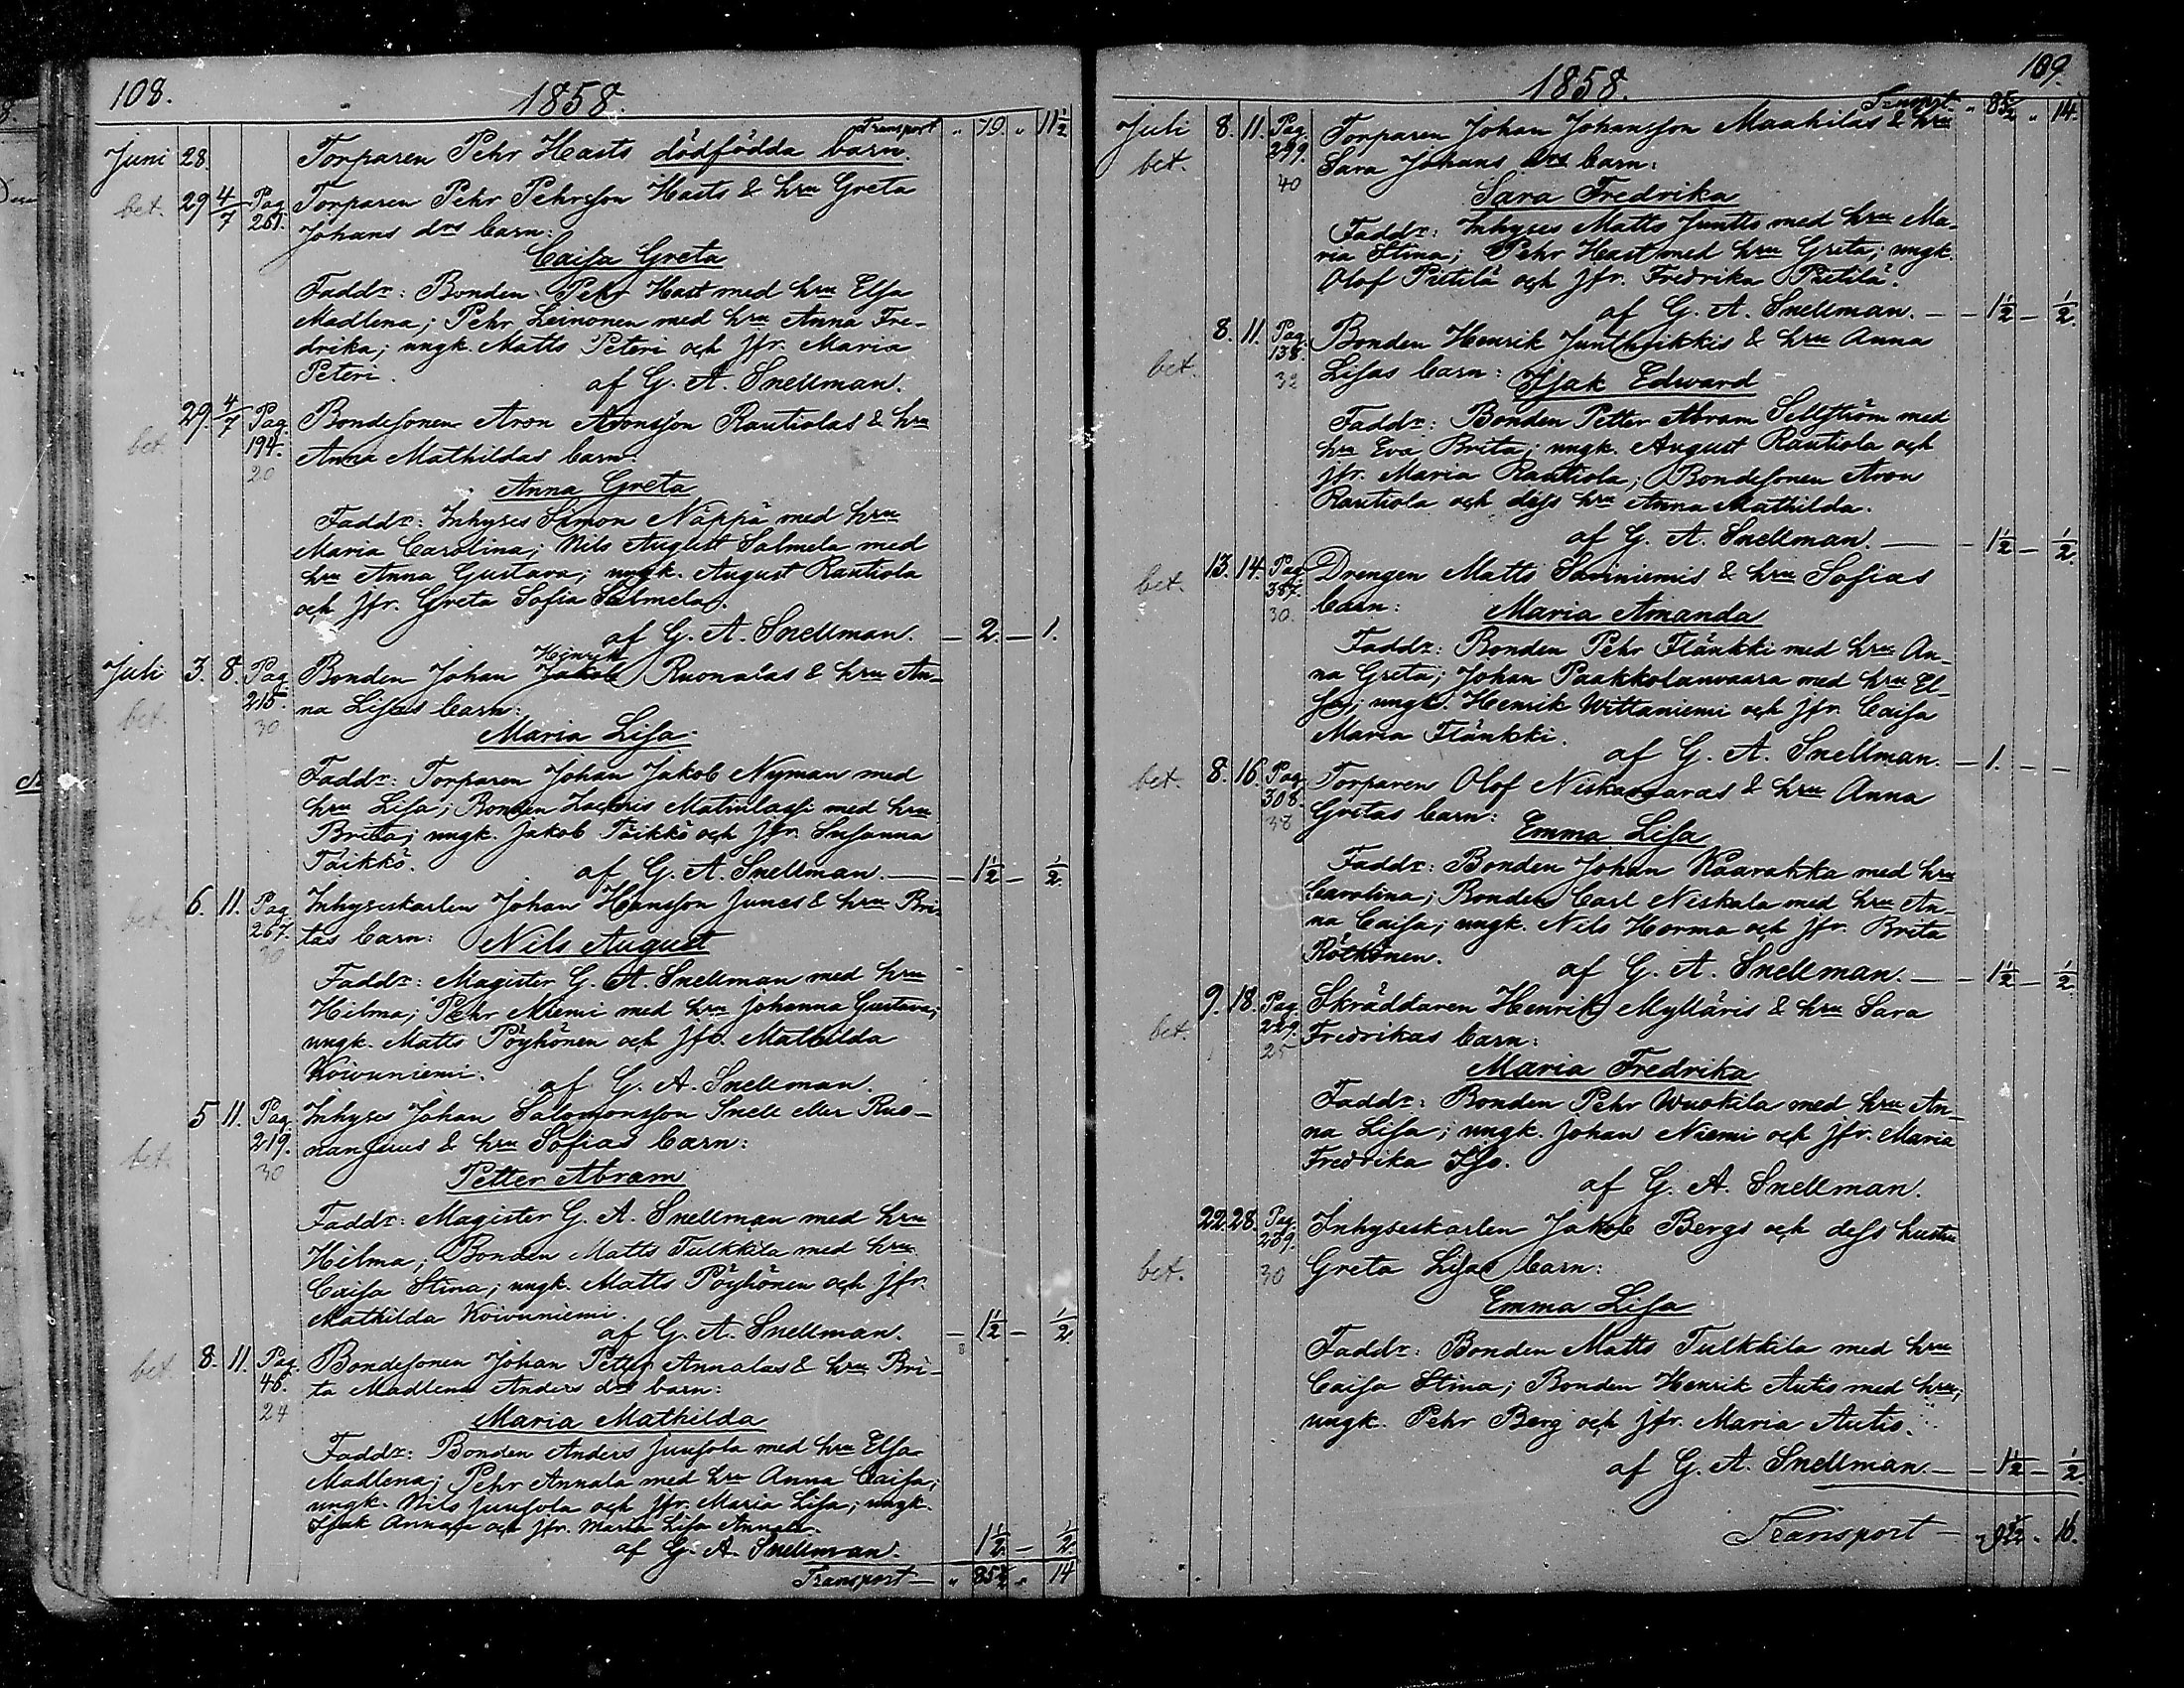 108.
1858.
Transport " 79. " 11 1/2
Juni 28. Torparen Pehr Hasts dödfödda barn.
bet. 29 4/7 Pag. 261. Torparen Pehr Pehrsson Hasts & hru Greta
Johans drs barn:
Caisa Greta
Faddr: Bonden Pehr Hast med hru Elsa
Madlena; Pehr Leinonen med hru Anna Fre-
drika; ungk. Matts Peteri och jfr. Maria
Peteri. af G. A. Snellman.
bet. 29. 4/7 Pag. 194. 20 Bondesonen Aron Aronsson Rautiolas & hru
Anna Mathildas barn:
Anna Greta
Faddr: Inhyses Simon Näppä med hru
Maria Carolina; Nils August Salmela med
hru Anna Gustava; ungk. August Rautiola
och jfr. Greta Sofia Salmela.
af G. A. Snellman. — 2. — 1.
Henrik
Juli 3. 8. Pag. 215. 30 Bonden Johan Jakob Ruonalas & hru An-
bet. na Lisas barn:
Maria Lisa
Faddr: Torparen Johan Jakob Nyman med
hru Lisa; Bonden Zachris Matinlassi med hru
Britta; ungk. Jakob Täikkö och jfr. Susanna
Täikkö. af G. A. Snellman. — — 1 1/2 — 1/2
bet. 6. 11. Pag. 267. 30 Inhyseskarlen Johan Hansson Junes & hru Bri-
tas barn: Nils August
Faddr: Magister G. A. Snellman med hru
Hilma; Pehr Niemi med hru Johanna Gustava;
ungk. Matts Pöyhönen och jfr. Mathilda
Koivuniemi. af G. A. Snellman.
bet. 5 11. Pag. 219. 30 Inhyses Johan Salomonsson Snell eller Ruo-
nan & hru Sofias barn:
Petter Abram
Faddr: Magister G. A. Snellman med hru
Hilma; Bonden Matts Tulkkila med hru
Caisa Stina; ungk. Matts Pöyhönen och jfr.
Mathilda Koivuniemi.
af G. A. Snellman. — 1 1/2 — 1/2
bet. 8. 11. Pag. 46. 24 Bondesonen Johan Petter Annalas & hru Bri-
ta Madlena Anders drs barn:
Maria Mathilda
Faddr: Bonden Anders Juusola med hru Elsa
Madlena; Pehr Annala med hru Anna Caisa;
ungk. Nils Juusola och jfr. Maria Lisa; ungk.
Isak Annala och jfr. Maria Lisa Annala.
af G. A. Snellman. 1 1/2 — 1/2
Transport — " 85 1/2 " 14
109.
1858.
Transport " 85 1/2 " 14.
Juli 8. 11. Pag. 299. 40 Torparen Johan Johansson Maahilas & hru
bet. Sara Johans drs barn:
Sara Fredrika
Faddr: Inhyses Matts Juntto med hru Ma-
ria Stina; Pehr Hast med hru Greta; ungk.
Olof Pietilä och jfr. Fredrika Pietilä.
af G. A. Snellman. — — 1 1/2 — 1/2
bet. 8. 11. Pag. 138. 32 Bonden Henrik Junthuikkis & hru Anna
Lisas barn: Isak Edward
Faddr: Bonden Petter Abram Sellström med
hru Eva Brita; ungk. August Rautiola och
jfr. Maria Rautiola; Bondesonen Aron
Rautiola och dess hru Anna Mathilda.
af G. A. Snellman. — — 1 1/2 — 1/2
bet. 13. 14. Pag. 387. 30. Drengen Matts Saviniemis & hru Sofias
barn: Maria Amanda
Faddr: Bonden Pehr Flänkki med hru An-
na Greta; Johan Paakkolanvaara med hru El-
sa; ungk. Henrik Wittaniemi och jfr. Caisa
Maria Flänkki.
af G. A. Snellman. — 1. — —
bet. 8. 16. Pag. 308. 38 Torparen Olof Niskavaaras & hru Anna
Gretas barn: Emma Lisa
Faddr: Bonden Johan Kaarakka med hru
Carolina; Bonden Carl Niskala med hru An-
na Caisa; ungk. Nils Horma och jfr. Brita
Rötkönen.
af G. A. Snellman. — — 1 1/2 — 1/2
bet. 9. 18. Pag. 229. 25 Skräddaren Henrik Mylläris & hru Sara
Fredrikas barn:
Maria Fredrika
Faddr: Bonden Pehr Wuokila med hru An-
na Lisa; ungk. Johan Niemi och jfr. Maria
Fredrika Iso.
af G. A. Snellman.
bet. 22. 28. Pag. 239. 30 Inhyseskarlen Jakob Bergs och dess hustru
Greta Lisas barn:
Emma Lisa
Faddr: Bonden Matts Tulkkila med hru
Caisa Stina; Bonden Henrik Autio med hru;
ungk. Pehr Berg och jfr. Maria Autio.
af G. A. Snellman. — — 1 1/2 — 1/2
Transport — " " 16.